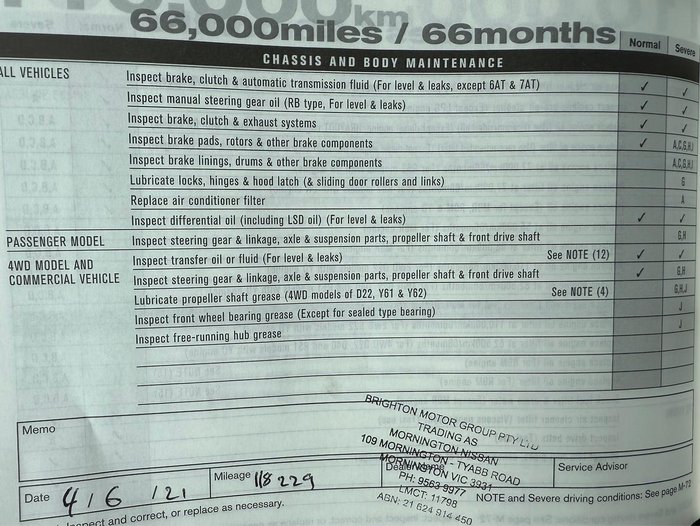 66,000miles / 66months
Normal Severe
CHASSIS AND BODY MAINTENANCE
ALL VEHICLES
Inspect brake, clutch & automatic transmission fluid (For level & leaks, except 6AT & 7AT) ✓ ✓
Inspect manual steering gear oil (RB type, For level & leaks) ✓ ✓
Inspect brake, clutch & exhaust systems ✓ ✓
Inspect brake pads, rotors & other brake components ✓ A,C,G,H,J
Inspect brake linings, drums & other brake components A,C,G,H,J
Lubricate locks, hinges & hood latch (& sliding door rollers and links) G
Replace air conditioner filter A
Inspect differential oil (including LSD oil) (For level & leaks) ✓ ✓
PASSENGER MODEL Inspect steering gear & linkage, axle & suspension parts, propeller shaft & front drive shaft G,H
4WD MODEL AND COMMERCIAL VEHICLE
Inspect transfer oil or fluid (For level & leaks) See NOTE (12) ✓ ✓
Inspect steering gear & linkage, axle & suspension parts, propeller shaft & front drive shaft ✓
Lubricate propeller shaft grease (4WD models of D22, Y61 & Y62) See NOTE (4) G,H,J
Inspect front wheel bearing grease (Except for sealed type bearing) J
Inspect free-running hub grease J
Memo
BRIGHTON MOTOR GROUP PTY LTD
TRADING AS
MORNINGTON NISSAN
109 MORNINGTON - TYABB ROAD
MORNINGTON VIC 3931
PH: 9563 9977
LMCT: 11798
ABN: 21 624 914 450
Date 4/6/21
Mileage 118 229
Dealer Name
Service Advisor
NOTE and Severe driving conditions: See page M-72
Inspect and correct, or replace as necessary.